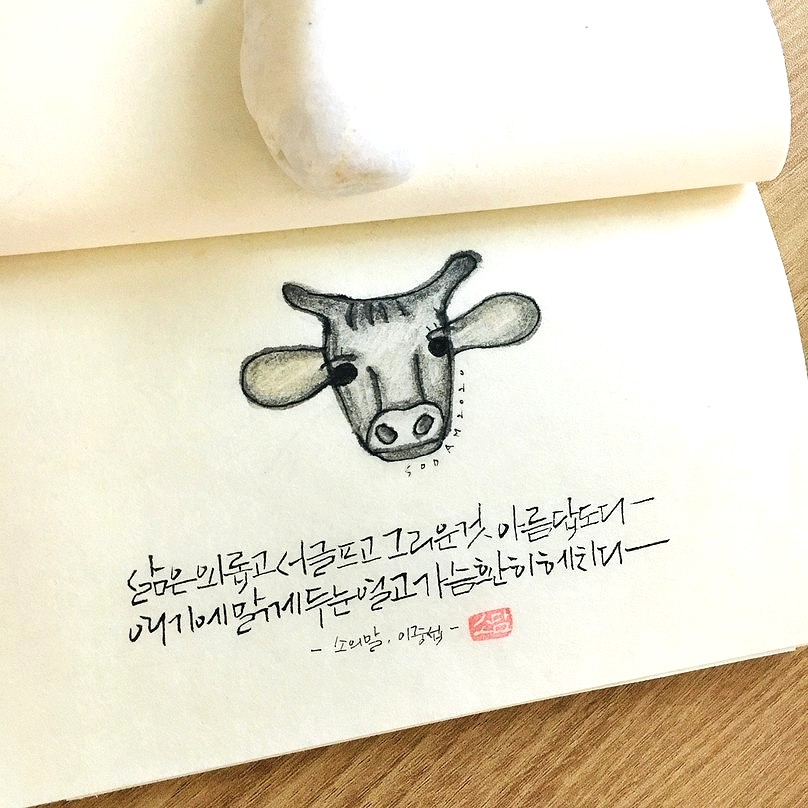 SODAM2020
삶은 외롭고 서글프고 그리운것, 아름답도다
여기에 맑게 두눈 열고 가슴 환히 헤치다
- 소의말, 이중섭 -
소담